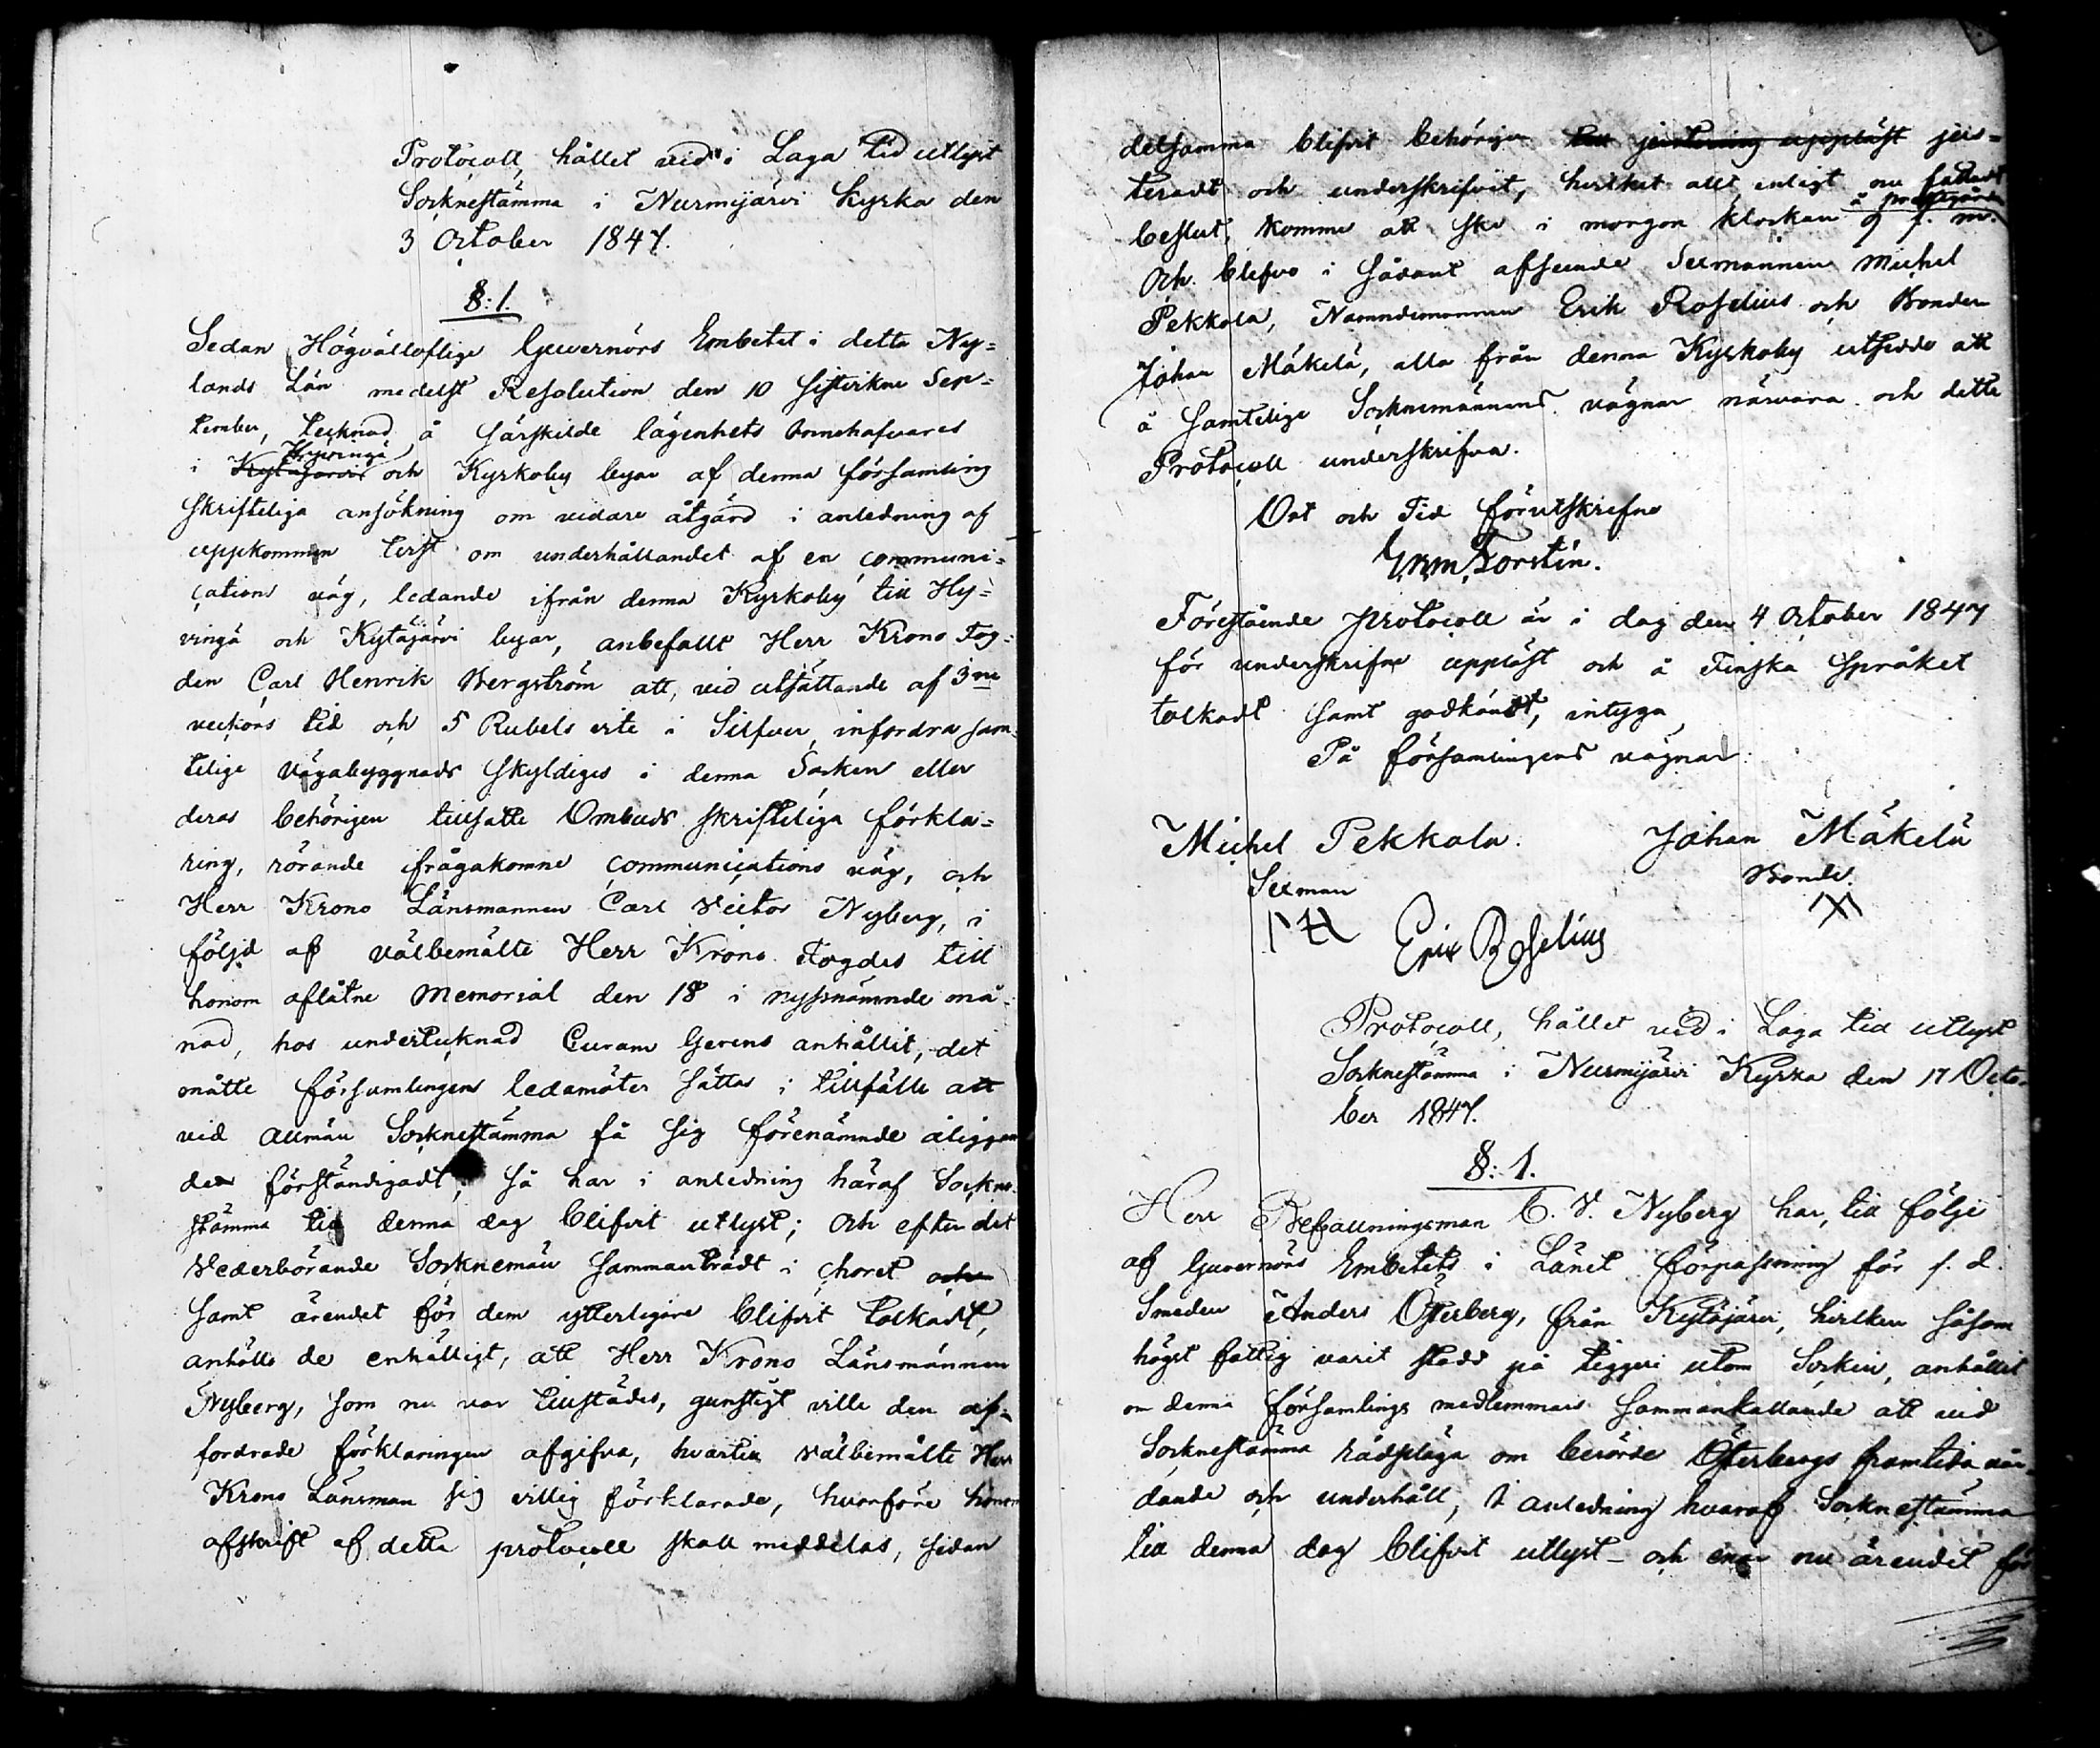 Protocoll, hållet vid i Laga tid utlyst
Socknestämma i Nurmijärvi Kyrka den
3 October 1847.
§: 1.
Sedan Högvälloflige Guvernörs Embetet i detta Ny-
lands Län medelst Resolution den 10 sistvikne Sep-
tember, tecknad å särskilde lägenhets Innehafvares
Hyvingä
i Kytäjärvi och Kyrkoby byar af denna församling
skrifteliga ansökning om vidare åtgärd i anledning af
uppkommen tvist om underhållandet af en communi-
cations väg, ledande ifrån denna Kyrkoby till Hy-
vingä och Kytäjärvi byar, anbefallt Herr Krono Fog-
den Carl Henrik Bergström att, vid utsättande af 3ne
veckors tid och 5 Rubels vite i Silfver, infordra sam-
telige vägabyggnads skyldiges i denna Socken eller
deras behörigen tillsatte Ombuds skrifteliga förkla-
ring, rörande ifrågakomne communications väg, och
Herr Krono Länsmannen Carl Victor Nyberg, i
följd af välbemälte Herr Krono Fogdes till
honom aflåtne Memorial den 18 i nyssnämnde må-
nad, hos undertecknad Curam Gerens anhållit, det
måtte församlingens ledamöter sättas i tillfälle att
vid allmän Socknestämma få sig förenämnde åliggan
den förständigadt, så har i anledning häraf Sockne-
stämma till denna dag blifvit utlyst; Och efter det
Vederbörande Socknemän sammanträdt i choret och
samt ärendet för dem ytterligare blifvit tolkadt,
anhöllo de enhälligt, att Herr Krono Länsmannen
Nyberg, som nu var tillstädes, gunstigt ville den af-
fordrade förklaringen afgifva, hvartill välbemälte Herr
Krono Länsman sig villig förklarade, hvarföre honom
afskrift af detta protocoll skall meddelas, sedan
detsamma blifvit behörigen till justering uppläst jus-
teradt och underskrifvit, hvilket allt enligt nu fattadt
å prestgården
beslut, kommer att ske i morgon klockan 9 f. m.
Och blefvo i sådant afseende Sexmannen Michel
Pekkola, Nämndemannen Erik Roselius och Bonden
Johan Mäkelä, alla från denna Kyrkoby utsedde att
å samtelige Socknemännens vägnar närvara och detta
Protocoll underskrifva.
Ort och Tid förutskrifne
Forstén.
Förestående protocoll är i dag den 4 October 1847
för underskrifne uppläst och å Finska språket
tolkadt samt godkändt, intyga
På församlingens vägnar:
Michel Pekkola. Johan Mäkelä
Sexman Bonde.
Erik Roselius
Protocoll, hållet vid i Laga tid utlyst
Socknestämma i Nurmijärvi Kyrka den 17 Octo-
ber 1847.
§: 1.
Herr Befallningsman C. V. Nyberg har, till följe
af Guvernörs Embetets i Länet förpassning för f. d.
Smeden Anders Österberg, från Kytäjärvi, hvilken såsom
högst fattig varit stadd på tiggeri utom Socken, anhållit
om denne församlings medlemmars sammankallande att vid
Socknestämma rådpläga om berörde Österbergs framtida vår-
dande och underhåll, i anledning hvaraf Socknestämma
till denna dag blifvit utlyst – och enär nu ärendet för